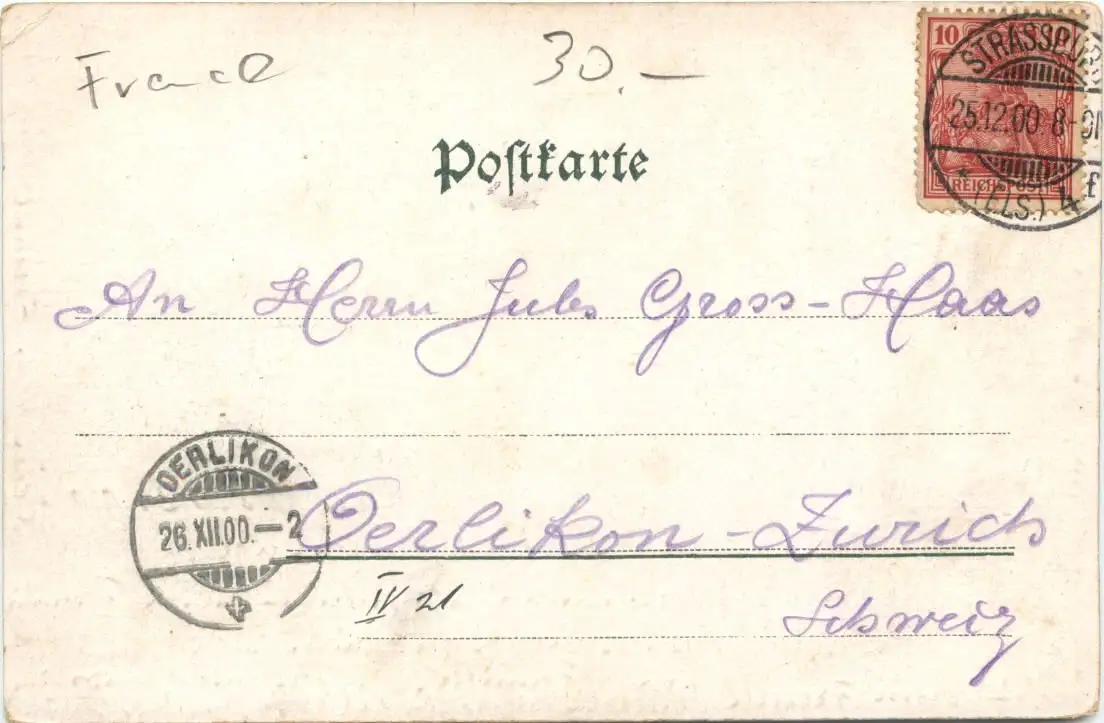 France 30.—
Postkarte
10
STRASSBURG
25.12.00 8-9N
REICHSPOST
* (ELS.) 4 f
An Herrn Jules Gross-Haas
OERLIKON
26.XII.00.—2
Oerlikon-Zürich
IV 21
Schweiz